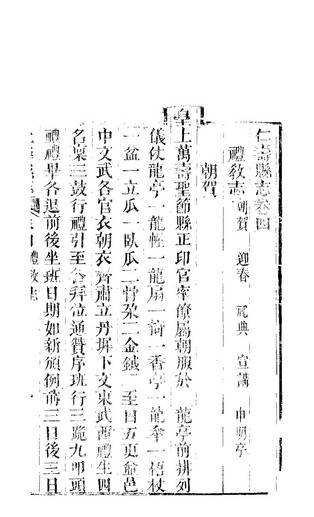 仁壽縣志卷四
禮教志 朝賀 迎春 祀典 宣講 申明亭
朝賀
皇上萬壽聖節縣正印官率僚屬朝服於 龍亭前排列
儀仗龍亭一龍幄一龍扇一 一香亭一龍傘一梧杖
一盆一立瓜一臥瓜二骨朶二金鉞二至日五更盆邑
中文武各官衣朝衣齊肅立丹墀下文東武西禮生四
名稟三鼓行禮引至合拜位通贊序班行三跪九叩頭
禮禮畢各退前後坐班日期如新頒例前三日後三日
禮教志